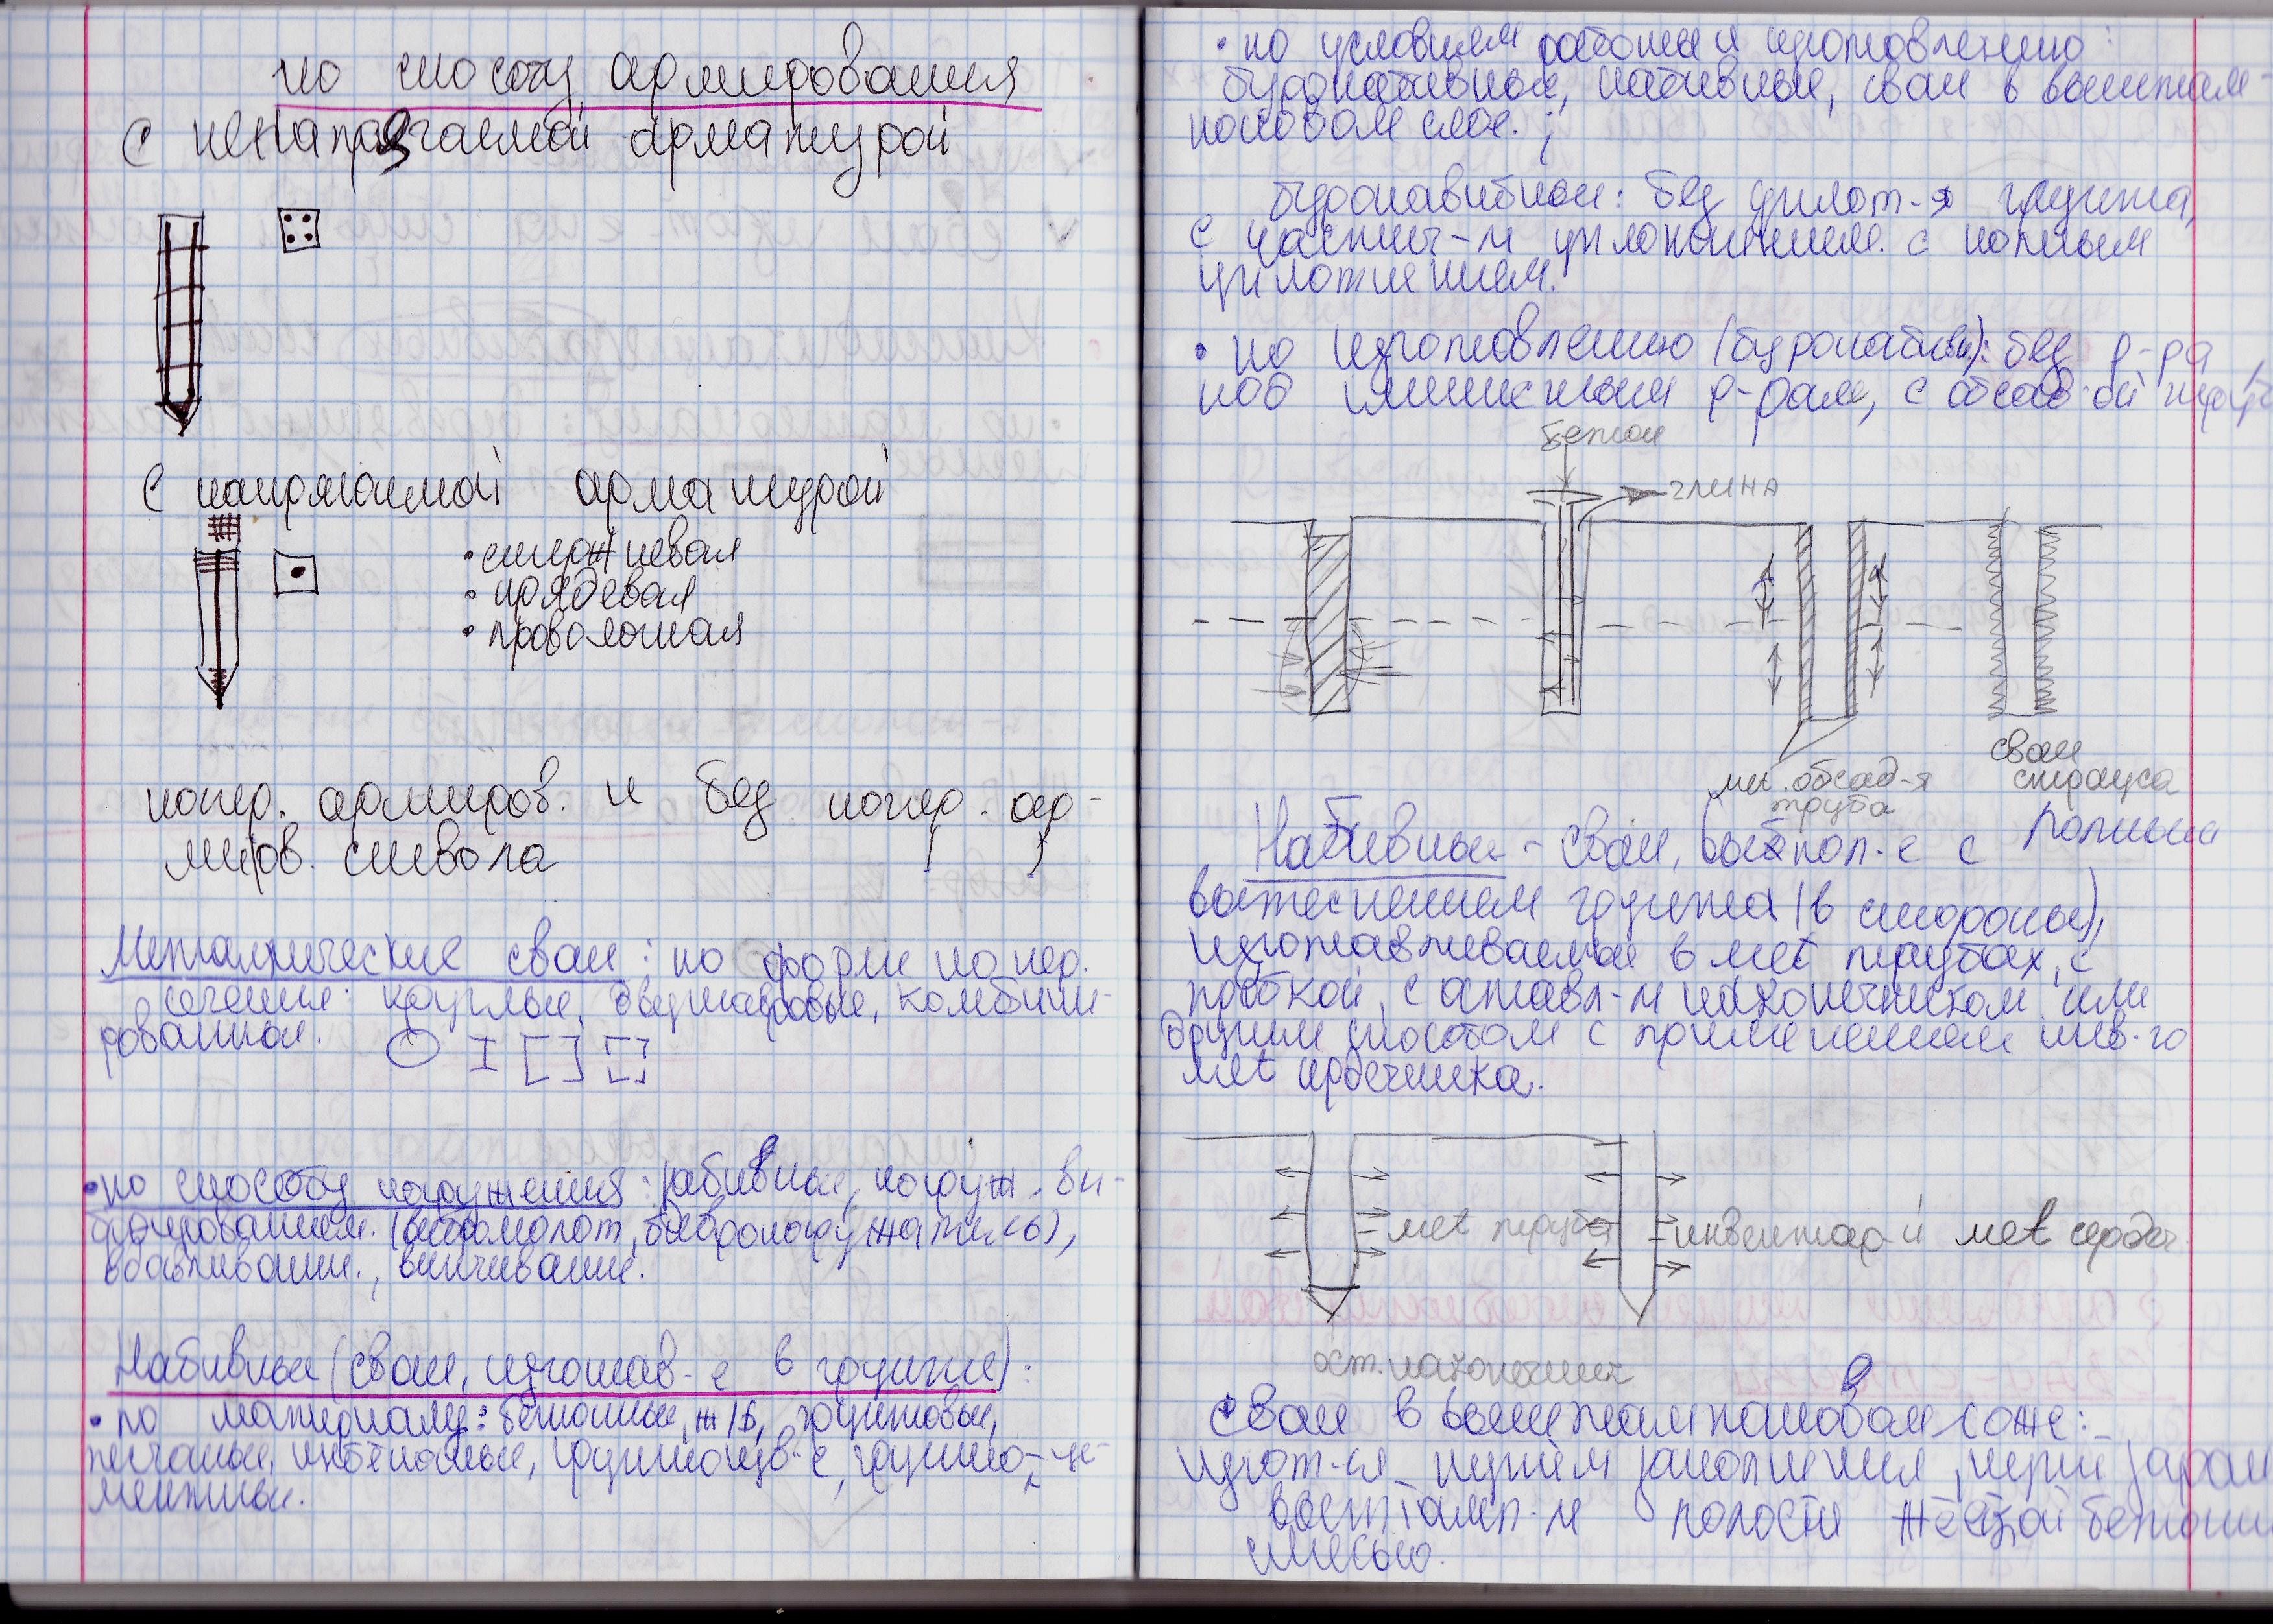 по способу армирования
с ненапрягаемой арматурой
с напрягаемой арматурой
• стержневая
• прядевая
• проволочная
попер. армиров. и без попер. ар-
миров. ствола
Металлические сваи: по форме попер.
сечения: круглые, двутавровые, комбини-
рованные.
• по способу погружения: забивные, погруж. ви-
брированием. (вибромолот, вибропогружатель),
вдавливание., винчивание.
Набивные (сваи, изготав-е в грунте):
• по материалу: бетонные, ж/б, грунтовые,
песчаные, грунто-це-
ментные.
• по условиям работы и изготовлению:
буронабивные, набивные, сваи в вытрам-
бованном слое. ;
буронабивные: без уплот-я грунта,
с частич-м уплотнением. с полным
уплотнением.
• по изготовлению (буронабивн): без р-ра,
под глинистым р-рам, с обсад-ой труб
бетон
глина
мет. обсад-я
труба
сваи
страуса
Набивные - сваи, выпол-е с полным
вытеснением грунта (в стороны),
изготавливаемые в мет трубах, с
пробкой, с оставл-м наконечником или
другим способом с применением инв-го
мет сердечника.
мет труба
инвентар-й мет сердеч.
ост. наконечник
Сваи в вытрамбованном ложе:
изгот-ся путём заполнения, через заран
вытрамб-м полости жёсткой бетонн
смесью.